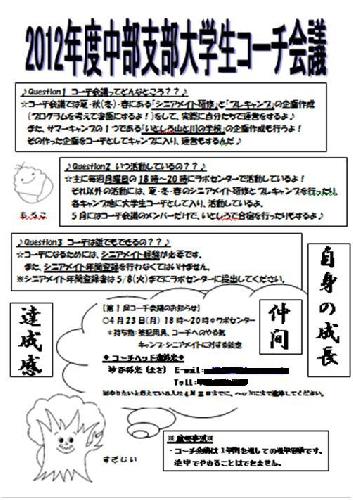 2012年度中部支部大学生コーチ会議
♪Question1 コーチ会議ってどんなところ？？♪
☆コーチ会議では夏・秋(冬)・春にある「シニアメイト研修」と「プレキャンプ」の企画作成
(プログラムを考えて書面にするよ！)をして、実際に自分たちで運営をするよ♪
また、サマーキャンプの1つである「いとしろ山と川の学校」の企画作成も行うよ！
その作った企画をコーチとしてキャンプに入り、運営するんだ♪
♪Question2 いつ活動しているの？？♪
☆主に毎週月曜日の18時～20時にラボセンターで活動しているよ！
それ以外の活動には、夏・冬・春のシニアメイト研修とプレキャンプを行ったり、
各キャンプ地に大学生コーチとして入り、活動しているよ。
5月にはコーチ会議のメンバーだけで、いとしろで合宿を行ったりもするよ♪
♪Question3 コーチは誰でもできるの？？♪
☆コーチになるためには、シニアメイト経験が必要です。
また、シニアメイト年間登録を行わなくてはいけません。
※シニアメイト年間登録者は5/8(火)までにラボセンターに提出してください。
自身の成長
仲間
達成感
【第1回コーチ会議のお知らせ】
○4月23日(月) 18時～20時＠ラボセンター
＊持ち物：筆記用具、コーチへのやる気
キャンプ・シニアメイトに対する談
◆コーチヘッド連絡先◆
E-mail：
Tell：
すごしい
※注意事項※
・コーチ会議は1年間を通しての通年活動です。
途中でやめることはできません。